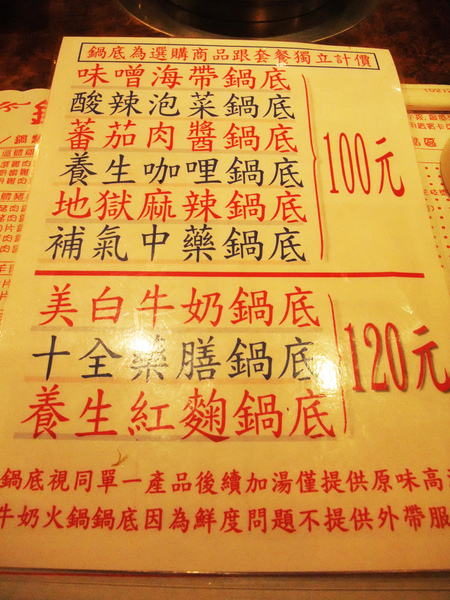 鍋底為選購商品跟套餐獨立計價
味噌海帶鍋底
酸辣泡菜鍋底
蕃茄肉醬鍋底
養生咖哩鍋底
地獄麻辣鍋底
補氣中藥鍋底
100元
美白牛奶鍋底
十全藥膳鍋底
養生紅麴鍋底
120元
鍋底視同單一產品後續加湯僅提供原味高
牛奶火鍋鍋底因為鮮度問題不提供外帶服